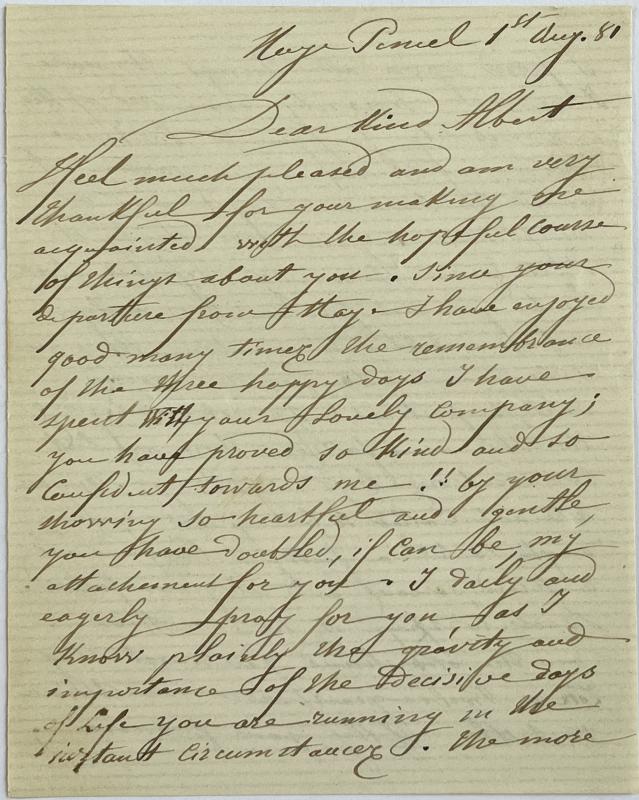 Haye 1st Aug. 81
Dear Kind Albert
I feel much pleased and am very
thankful for your making me
acquainted with the hopeful course
of things about you. Since your
departure from Haye I have enjoyed
good many times the remembrance
of the three happy days I have
spent with your Lovely Company;
you have proved so kind and so
Confident towards me!! by your
showing so heartful and gentle,
you have doubled, if can be, my
attachement for you. I daily and
eagerly pray for you as I
Know plainly the gravity and
importance of the decisive days
of Life you are running in the
instant Circumstances. The more